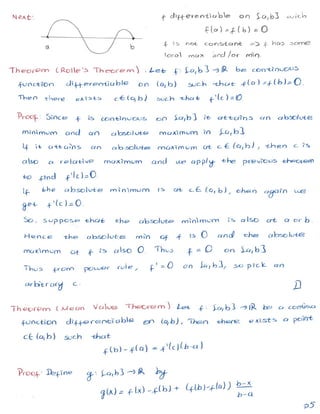 Next:
f differentiable on [a,b] with
f(a) = f(b) = 0
a b
f is not constant => f has some
local max and/or min.
Theorem (Rolle's Theorem). Let f: [a,b] → R be continuous
function differentiable on (a,b) such that f(a)=f(b)=0.
Then there exists c∈(a,b) such that f'(c)=0
Proof: Since f is continuous on [a,b] it attains an absolute
minimum and an absolute maximum in [a,b]
If it attains an absolute maximum at c∈(a,b), then c is
also a relative maximum and we apply the previous theorem
to find f'(c)=0
If the absolute minimum is at c∈(a,b), then again we
get f'(c)=0.
So, suppose that the absolute minimum is also at a or b.
Hence the absolute min of f is 0 and the absolute
maximum of f is also 0. Thus f = 0 on [a,b]
Thus from power rule, f' = 0 on [a,b], so pick an
arbitrary c.
Theorem (Mean Value Theorem) Let f: [a,b] → R be a continuous
function differentiable on (a,b). Then there exists a point
c∈(a,b) such that
f(b)-f(a) = f'(c)(b-a)
Proof: Define g: [a,b] → R by
g(x) = f(x) - f(b) + (f(b)-f(a)) b-x
b-a
p5